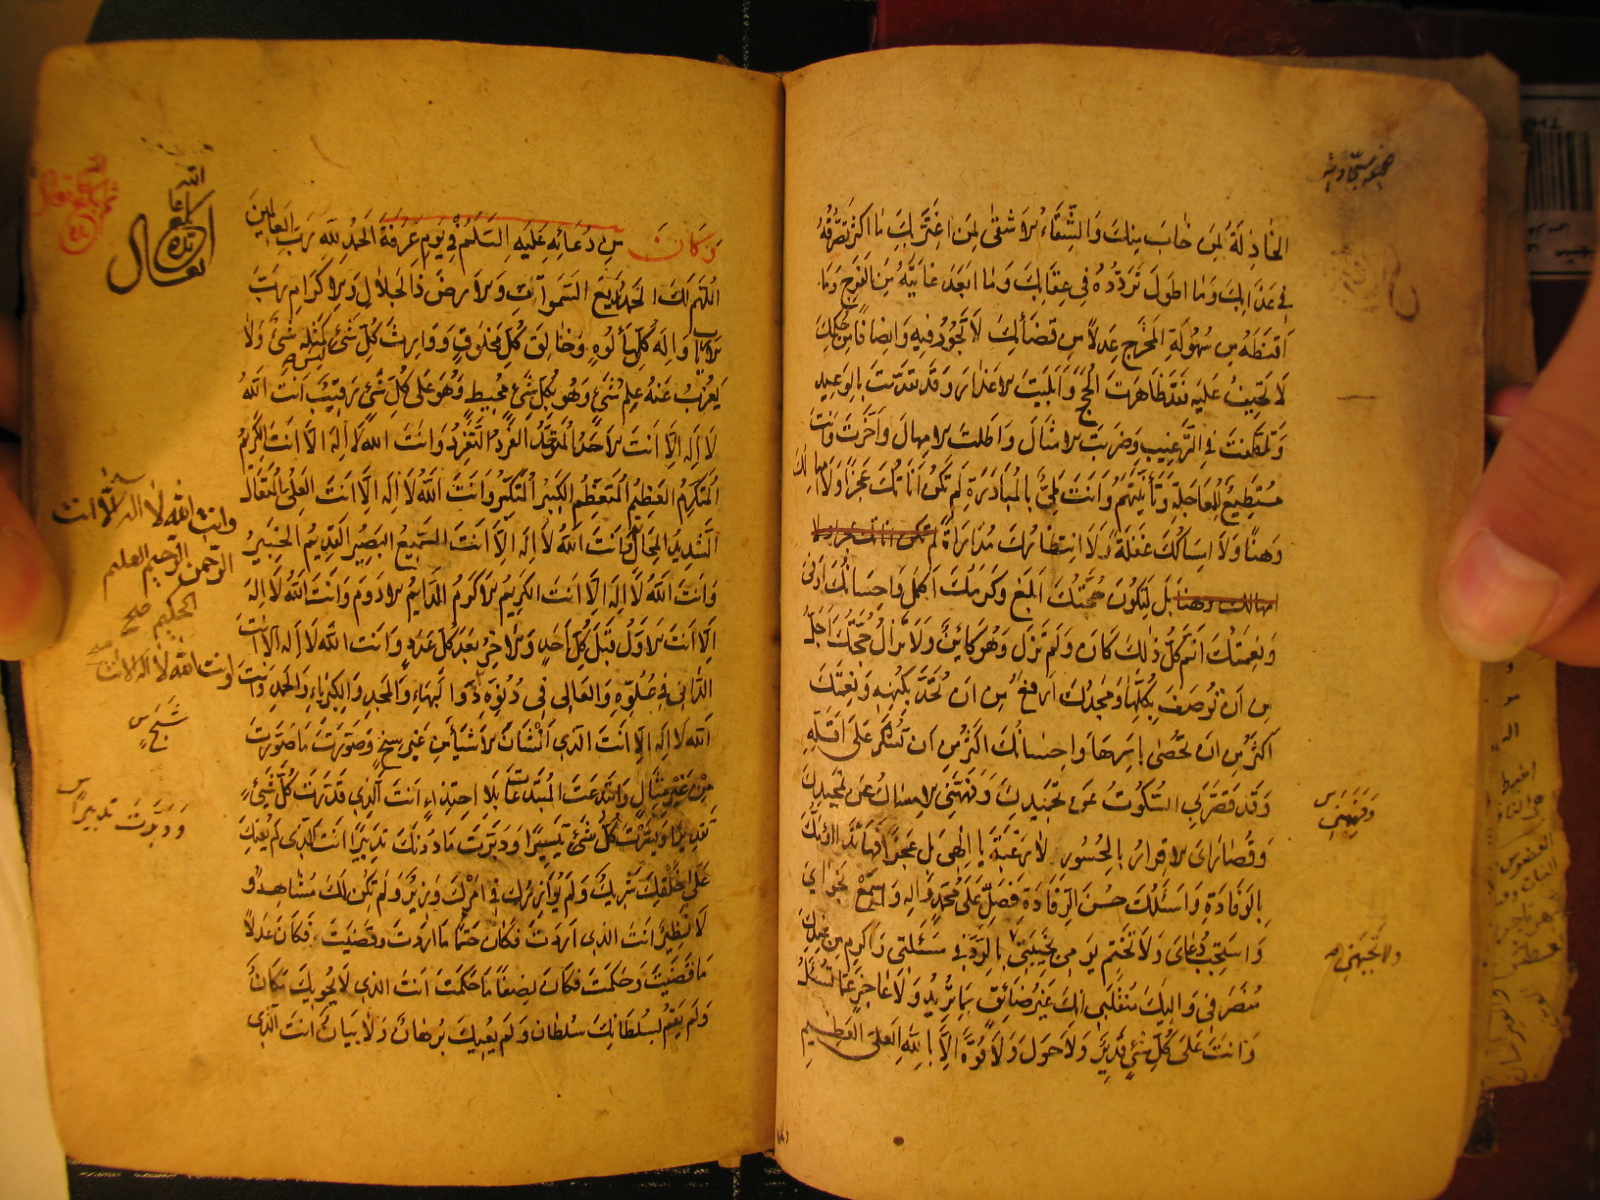 صحيفه سجاديه
الخاذلة لمن خاب منك والشقاء الاشقى لمن اغتر بك ما اكثر تصرفه
في عذابك وما اطول تردده في عقابك وما ابعد غايته من الفرج وما
اقنطه من سهولة المخرج عدلا من قضائك لا تجور فيه وانصافا من حكمك
لا تحيف عليه فقد ظاهرت الحجج وابليت الاعذار وقد تقدمت بالوعيد
وتلطفت في الترغيب وضربت الامثال واطلت الامهال واخرت وانت
مستطيع للمعاجلة وتأنيت وانت ملئ بالمبادرة لم تكن اناتك عجزا ولا امهالك
وهنا ولا امساكك غفلة ولا انتظارك مداراة لم تكن اناتك عجزا ولا
امهالك وهنا بل لتكون حجتك ابلغ وكرمك اكمل واحسانك اوفى
ونعمتك اتم كل ذلك كان ولم تزل وهو كائن ولا تزال حجتك اجل
من ان توصف بكلها ومجدك ارفع من ان تحد بكنهه ونعمتك
اكثر من ان تحصى باسرها واحسانك اكثر من ان تشكر على اقله
وقد قصر بي السكوت عن تحميدك وفههني الامساك عن تمجيدك
وفههني س
وقصاراي الاقرار بالحسور لا رغبة يا الهي بل عجزا فها انا ذا اؤمك
بالوفادة واسئلك حسن الرفادة فصل على محمد واله واسمع نجواي
واستجب دعائي ولا تختم يومي بخيبتي بالرد في مسئلتي واكرم من عندك
ولا تجبهني
منصرفي واليك منقلبي انك غير ضائق بما تريد ولا عاجز عما تسئل
وانت على كل شئ قدير ولا حول ولا قوة الا بالله العلي العظيم
وكان من دعائه عليه السلم في يوم عرفة الحمد لله رب العالمين
اللهم لك الحمد بديع السموات والارض ذا الجلال والاكرام رب
الارباب واله كل مألوه وخالق كل مخلوق ووارث كل شئ ليس كمثله شئ ولا
يعزب عنه علم شئ وهو بكل شئ محيط وهو على كل شئ رقيب انت الله
لا اله الا انت الاحد المتوحد الفرد المتفرد وانت الله لا اله الا انت الكريم
المتكرم العظيم المتعظم الكبير المتكبر وانت الله لا اله الا انت العلي المتعال
الشديد المحال وانت الله لا اله الا انت السميع البصير القديم الخبير
وانت الله لا اله الا انت
الرحمن الرحيم العليم
الحكيم صح
وانت الله لا اله الا انت الكريم الاكرم الدائم الادوم وانت الله لا اله
الا انت الاول قبل كل احد والاخر بعد كل عدد وانت الله لا اله الا انت
وانت الله لا اله الا انت
الداني في علوه والعالي في دنوه ذو البهاء والمجد والكبرياء والحمد وانت
الله لا اله الا انت الذي انشأت الاشياء من غير سنخ وصورت ما صورت
شبح س
من غير مثال وابتدعت المبتدعات بلا احتذاء انت الذي قدرت كل شئ
تقديرا ويسرت كل شئ تيسيرا ودبرت ما دونك تدبيرا انت الذي لم يعنك
ودبرت تدبيرا س
على خلقك شريك ولم يوازرك في امرك وزير ولم يكن لك مشاهد و
لا نظير انت الذي اردت فكان حتما ما اردت وقضيت فكان عدلا
ما قضيت وحكمت فكان نصفا ما حكمت انت الذي لا يحويك مكان
ولم يقم لسلطانك سلطان ولم يعيك برهان ولا بيان انت الذي